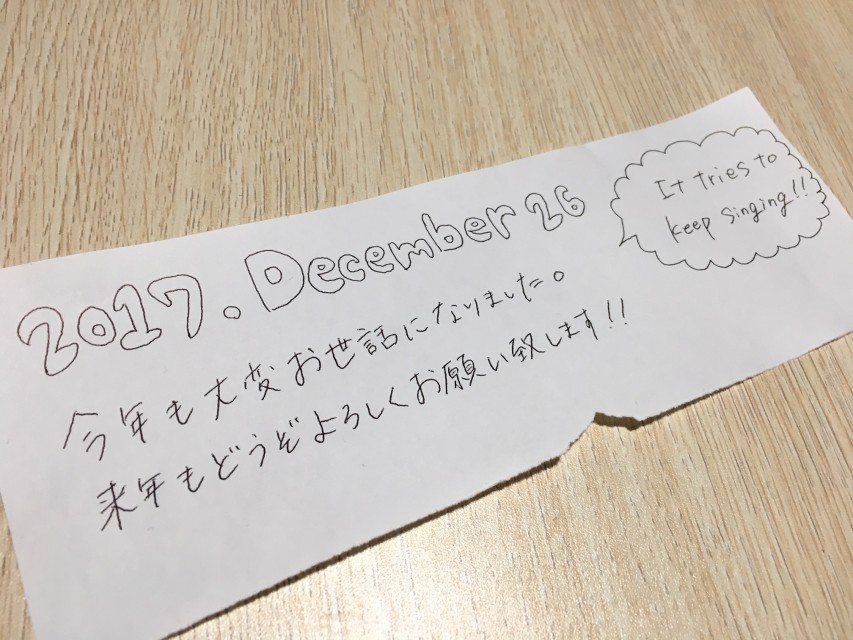 2017. December 26
It tries to
keep singing!!
今年も大変お世話になりました。
来年もどうぞよろしくお願い致します!!